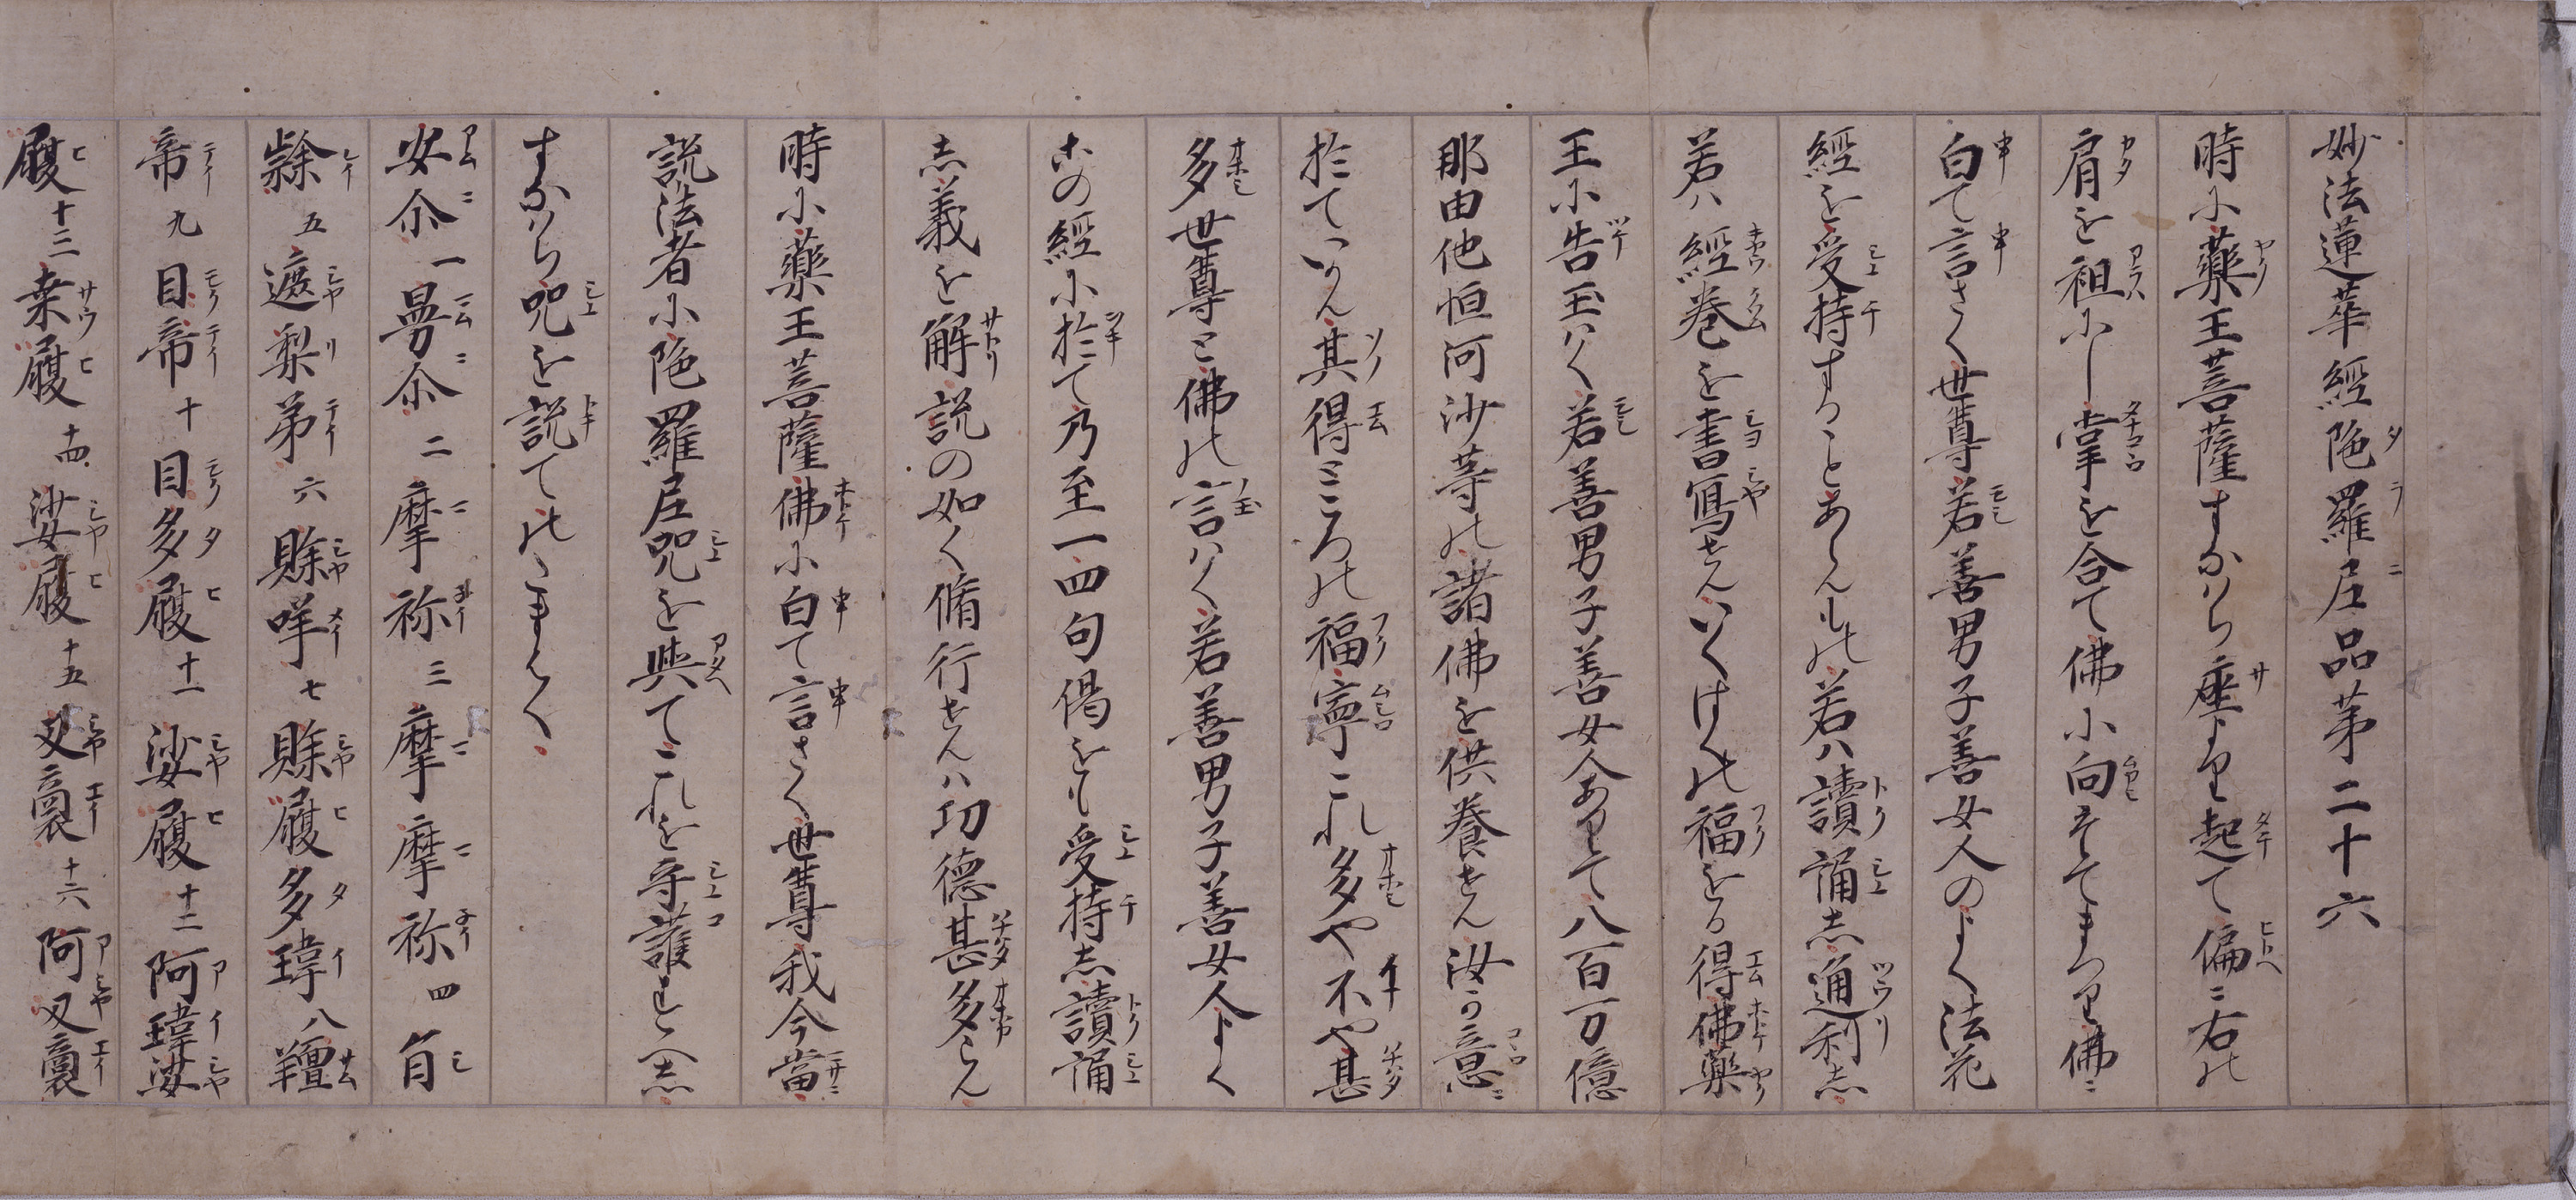 妙法蓮華經陁羅尼品第二十六
時に藥王菩薩すなハち座より起て偏ニ右の
肩を袒にし掌を合て佛に向たてまつり佛ニ
白て言さく世尊若善男子善女人のよく法花
經を受持することあらんもの若ハ讀誦し通利し
若ハ經巻を書寫せんいくはくの福をる得佛藥
王に告玉ハく若善男子善女人ありて八百万億
那由他恒河沙等の諸佛を供養せん汝か意ニ
於ていかん其得ところの福寧これ多や不や甚
多世尊と佛の言ハく若善男子善女人よく
この經に於て乃至一四句偈をも受持し讀誦
し義を解説の如く脩行せんハ功德甚多らん
時に藥王菩薩佛に白て言さく世尊我今當
説法者に陁羅尼咒を與てこれを守護すへし
すなハち咒を説ての玉はく
安尒一曼尒二摩祢三摩摩祢四旨
隸五遮梨弟六賖咩七賖履多瑋八羶
帝九目帝十目多履十一娑履十二阿瑋娑
履十三桒履十四娑履十五叉裔十六阿叉裔